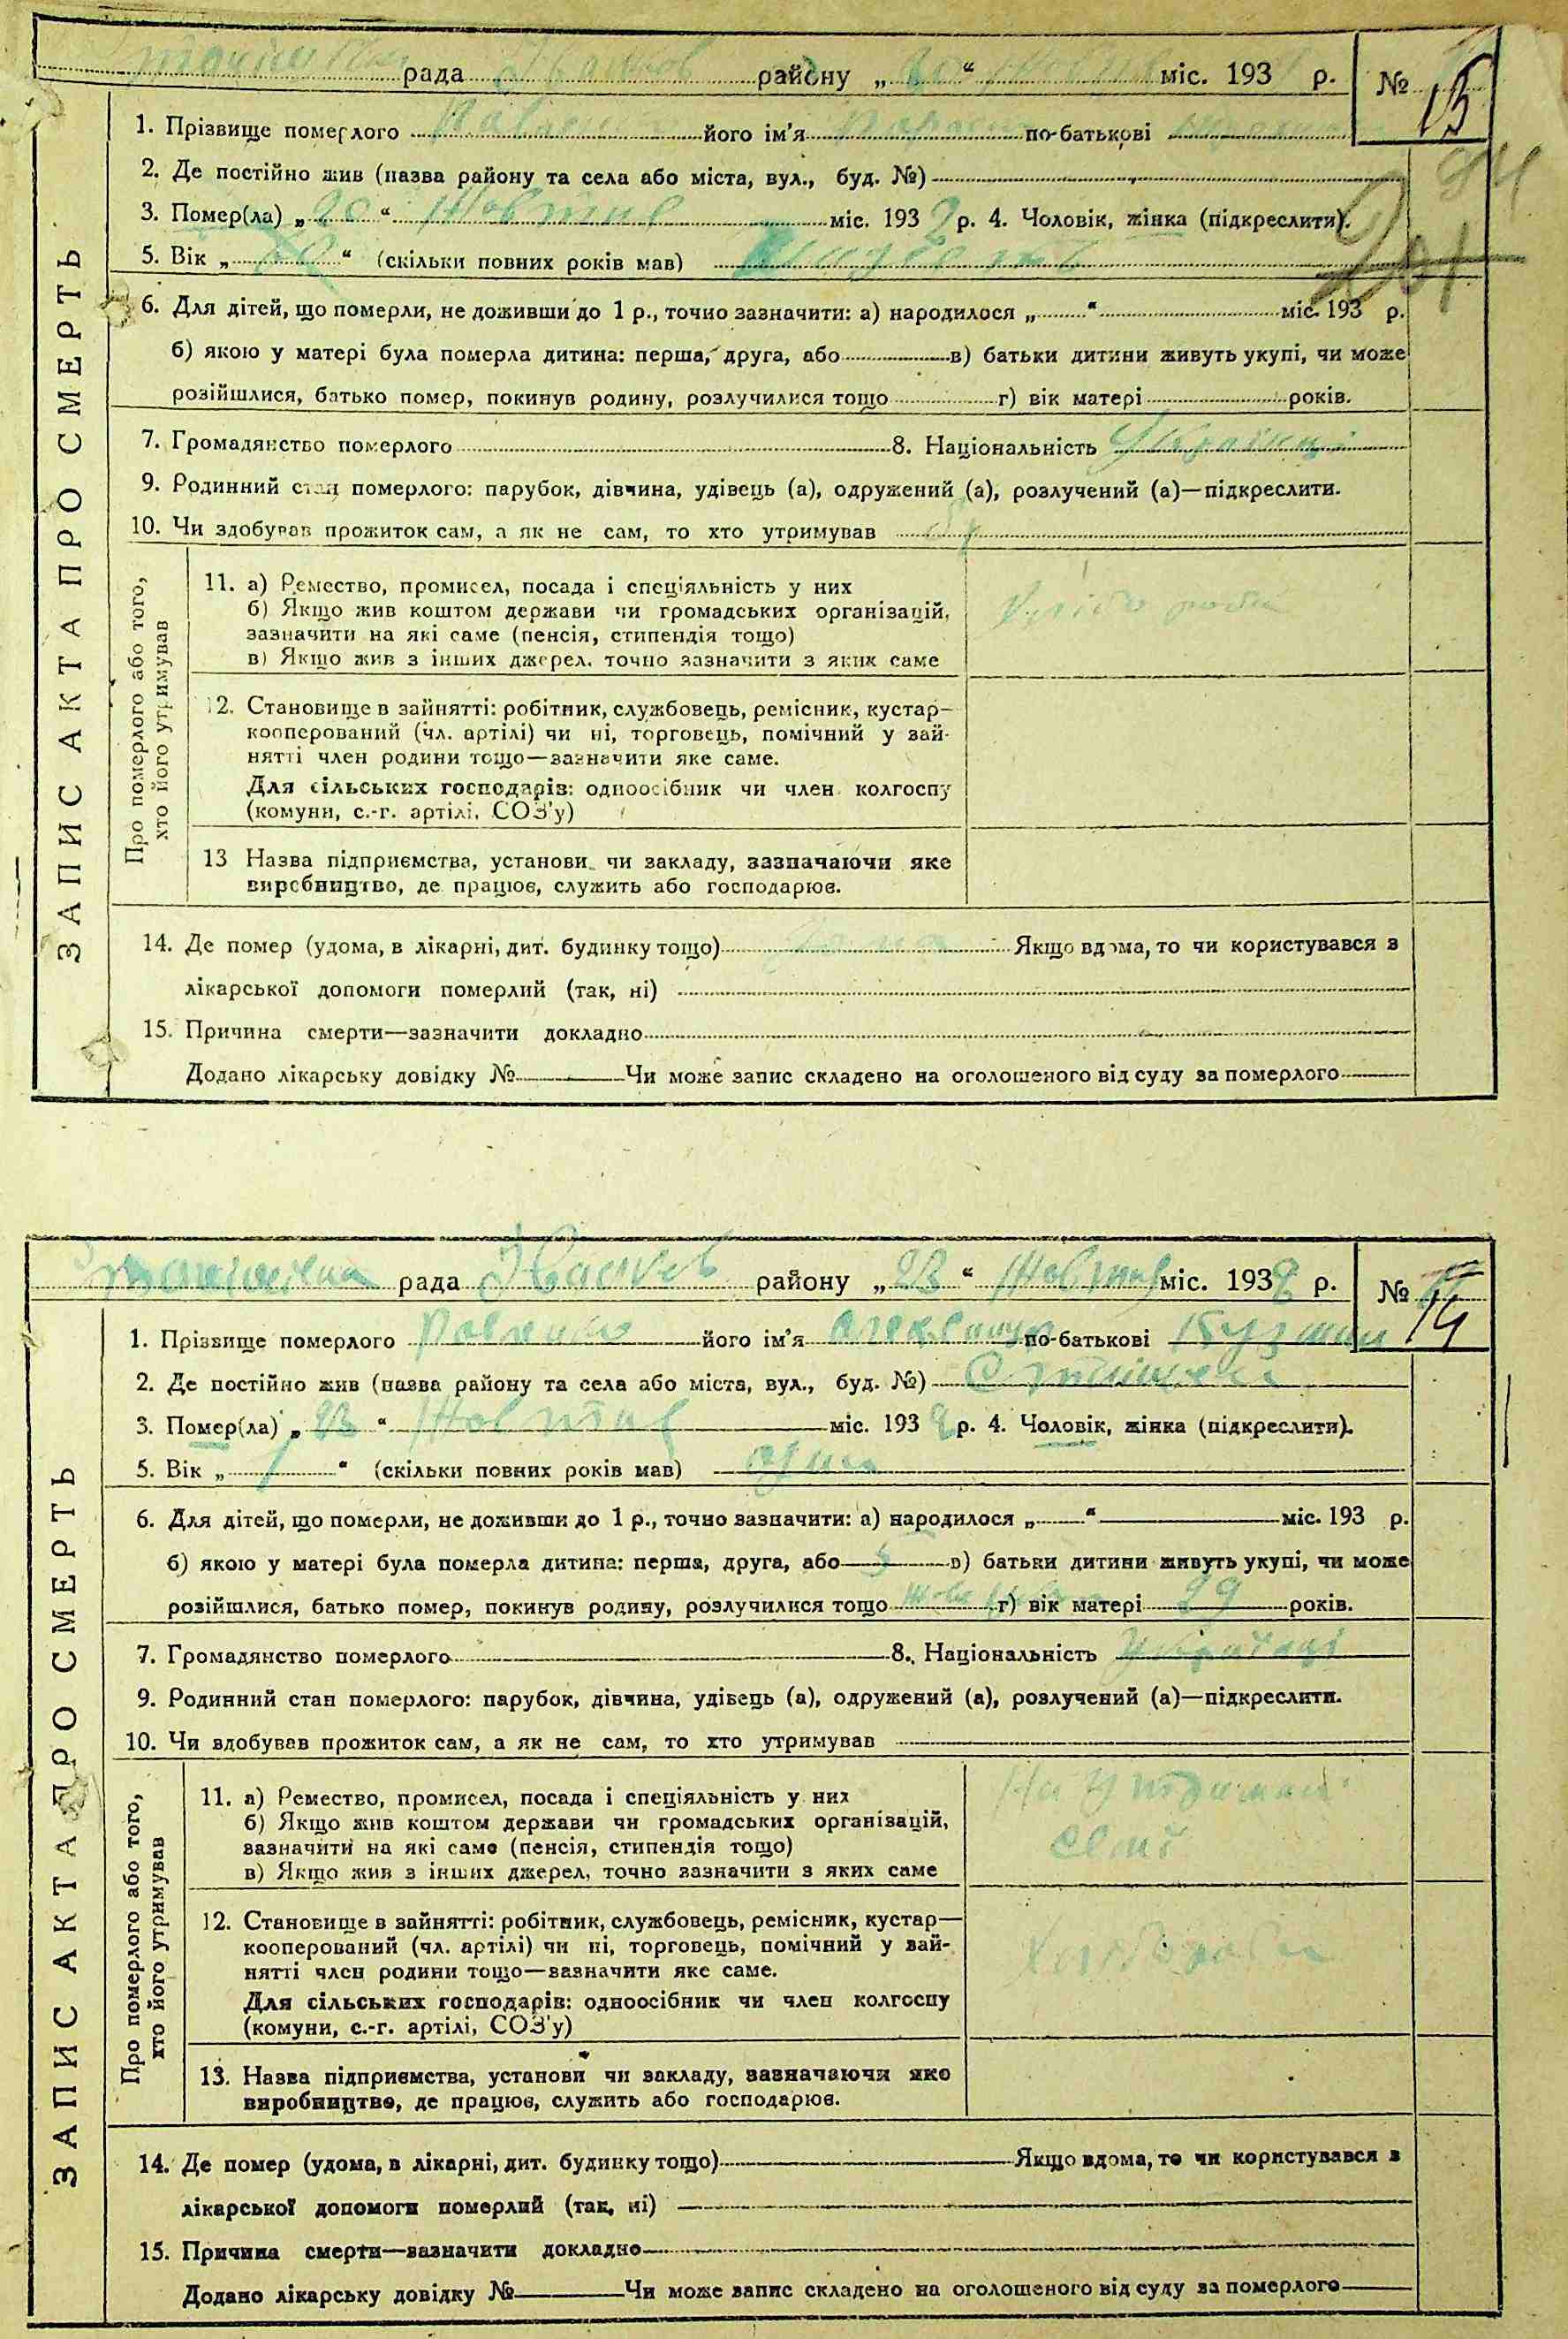 рада районy „ “ міс. 193 р. № 13
1. Прізвище померлого його ім'я по-батькові
84
2. Де постійно жив (назва району та села або міста, вул., буд. №)
3. Помер(ла) „20“ Жовтня міс. 1932 р. 4. Чоловік, жінка (підкреслити).
5. Вік „ “ (скільки повних років мав)
6. Для дітей, що померли, не доживши до 1 р., точно зазначити: а) народилося „ “ міс. 193 р.
б) якою у матері була померла дитина: перша, друга, або в) батьки дитини живуть укупі, чи може
розійшлися, батько помер, покинув родину, розлучилися тощо г) вік матері років.
7. Громадянство померлого 8. Національність Українці
9. Родинний стан померлого: парубок, дівчина, удівець (а), одружений (а), розлучений (а)—підкреслити.
10. Чи здобував прожиток сам, а як не сам, то хто утримував
11. а) Ремество, промисел, посада і спеціяльність у них
б) Якщо жив коштом держави чи громадських організацій,
зазначити на які саме (пенсія, стипендія тощо)
в) Якщо жив з інших джерел, точно зазначити з яких саме
12. Становище в зайнятті: робітник, службовець, ремісник, кустар—
кооперований (чл. артілі) чи ні, торговець, помічний у зай-
нятті член родини тощо—зазначити яке саме.
Для сільських господарів: одноосібник чи член колгоспу
(комуни, с.-г. артілі, СОЗ'у)
13 Назва підприємства, установи чи закладу, зазначаючи яке
виробництво, де працює, служить або господарює.
14. Де помер (удома, в лікарні, дит. будинку тощо) Якщо вдома, то чи користувався з
лікарської допомоги померлий (так, ні)
15. Причина смерти—зазначити докладно
Додано лікарську довідку № Чи може запис складено на оголошеного від суду за померлого
ЗАПИС АКТА ПРО СМЕРТЬ
Про померлого або того,
хто його утримував
рада районy „22“ Жовтня міс. 1932 р. № 14
1. Прізвище померлого Павленко його ім'я Олександр по-батькові Кузьмич
2. Де постійно жив (назва району та села або міста, вул., буд. №)
3. Помер(ла) „22“ Жовтня міс. 1932 р. 4. Чоловік, жінка (підкреслити).
5. Вік „1“ (скільки повних років мав) один
6. Для дітей, що померли, не доживши до 1 р., точно зазначити: а) народилося „ “ міс. 193 р.
б) якою у матері була померла дитина: перша, друга, або в) батьки дитини живуть укупі, чи може
розійшлися, батько помер, покинув родину, розлучилися тощо г) вік матері 29 років.
7. Громадянство померлого 8. Національність Українці
9. Родинний стан померлого: парубок, дівчина, удівець (а), одружений (а), розлучений (а)—підкреслити.
10. Чи здобував прожиток сам, а як не сам, то хто утримував
11. а) Ремество, промисел, посада і спеціяльність у них
б) Якщо жив коштом держави чи громадських організацій,
зазначити на які саме (пенсія, стипендія тощо)
в) Якщо жив з інших джерел, точно зазначити з яких саме
На
12. Становище в зайнятті: робітник, службовець, ремісник, кустар—
кооперований (чл. артілі) чи ні, торговець, помічний у зай-
нятті член родини тощо—зазначити яке саме.
Для сільських господарів: одноосібник чи член колгоспу
(комуни, с.-г. артілі, СОЗ'у)
13. Назва підприємства, установи чи закладу, зазначаючи яке
виробництво, де працює, служить або господарює.
14. Де помер (удома, в лікарні, дит. будинку тощо) Якщо вдома, то чи користувався з
лікарської допомоги померлий (так, ні)
15. Причина смерти—зазначити докладно
Додано лікарську довідку № Чи може запис складено на оголошеного від суду за померлого
ЗАПИС АКТА ПРО СМЕРТЬ
Про померлого або того,
хто його утримував